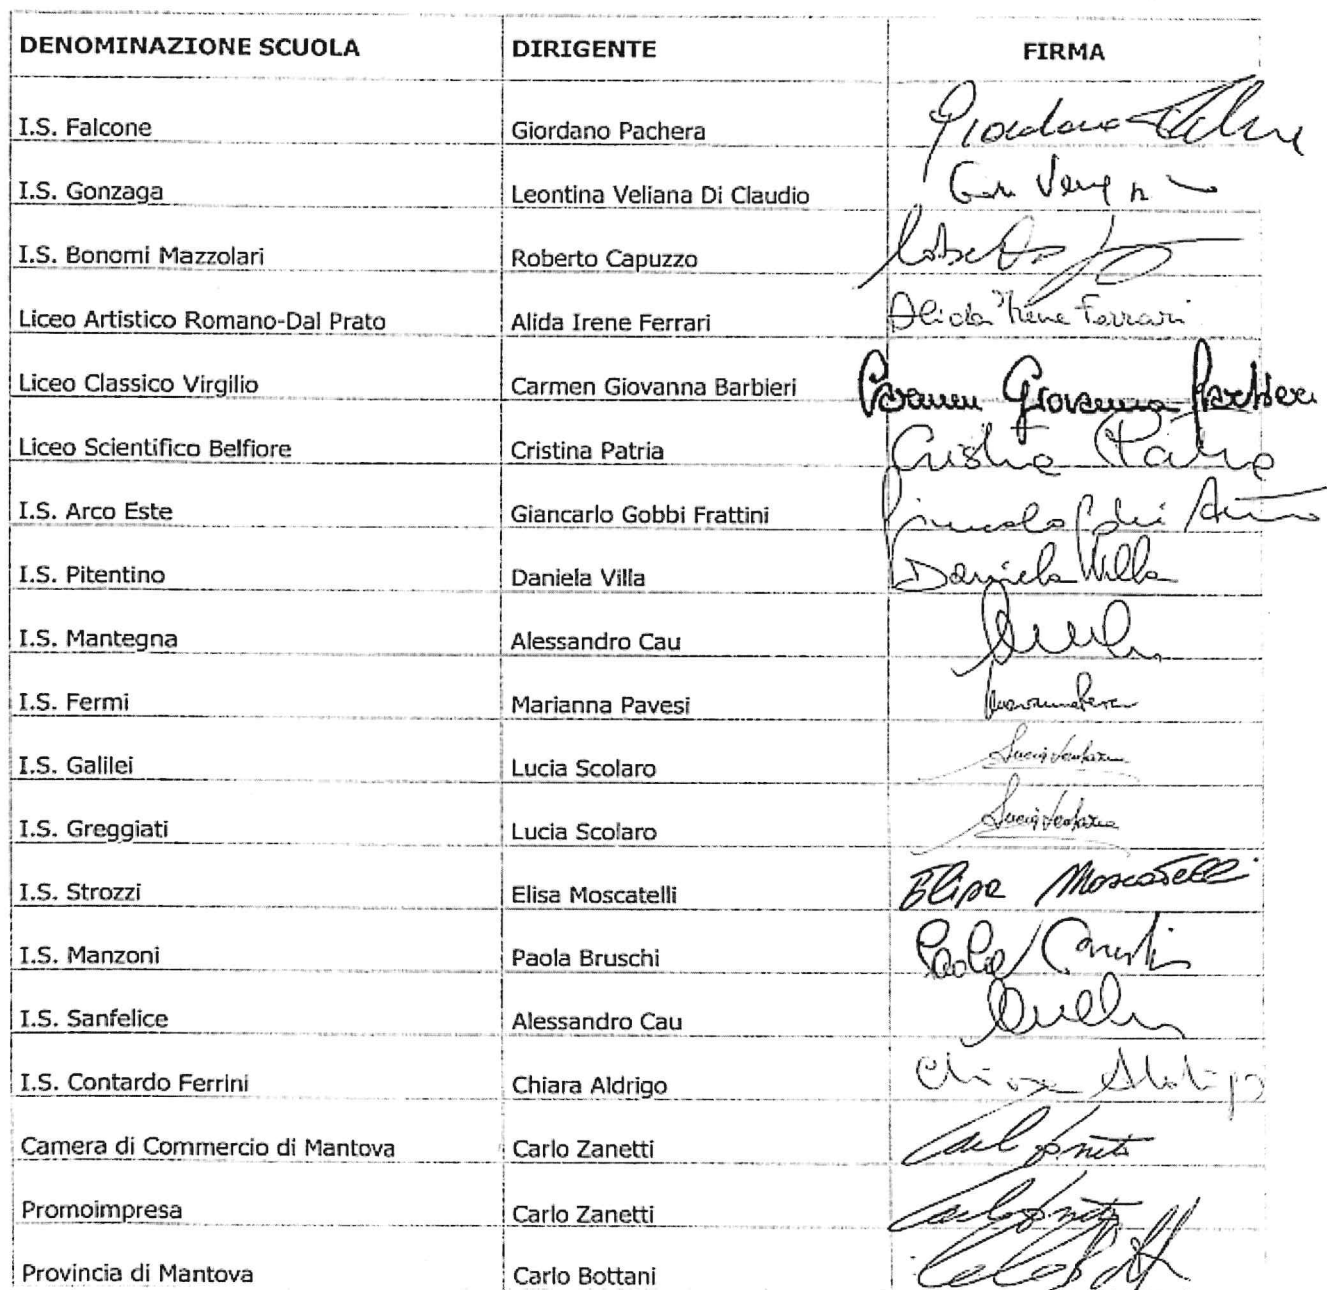 DENOMINAZIONE SCUOLA DIRIGENTE FIRMA
I.S. Falcone Giordano Pachera Giordano
I.S. Gonzaga Leontina Veliana Di Claudio
I.S. Bonomi Mazzolari Roberto Capuzzo
Liceo Artistico Romano-Dal Prato Alida Irene Ferrari Alida Irene Ferrari
Liceo Classico Virgilio Carmen Giovanna Barbieri Carmen Giovanna Barbieri
Liceo Scientifico Belfiore Cristina Patria Cristina Patria
I.S. Arco Este Giancarlo Gobbi Frattini
I.S. Pitentino Daniela Villa Daniela Villa
I.S. Mantegna Alessandro Cau
I.S. Fermi Marianna Pavesi
I.S. Galilei Lucia Scolaro
I.S. Greggiati Lucia Scolaro
I.S. Strozzi Elisa Moscatelli Elisa Moscatelli
I.S. Manzoni Paola Bruschi Paola
I.S. Sanfelice Alessandro Cau
I.S. Contardo Ferrini Chiara Aldrigo Chiara Aldrigo
Camera di Commercio di Mantova Carlo Zanetti
Promoimpresa Carlo Zanetti
Provincia di Mantova Carlo Bottani